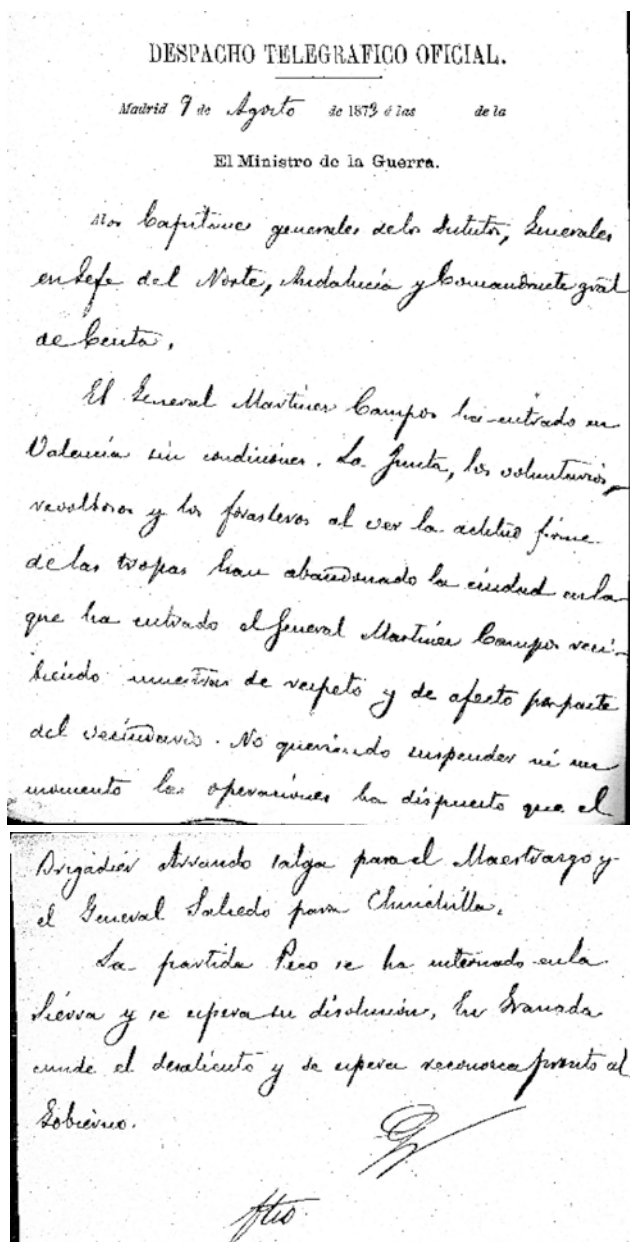 DESPACHO TELEGRAFICO OFICIAL.
Madrid 9 de Agosto de 1873 á las de la
El Ministro de la Guerra.
Capitanes generales de los Distritos, Generales
en Gefe del Norte, Andalucía y Comandante gral
de Ceuta.
El General Martinez Campos ha entrado en
Valencia sin condiciones. La Junta, los voluntarios,
revoltosos y los forasteros al ver la actitud firme
de las tropas han abandonado la ciudad en la
que ha entrado el General Martinez Campos reci-
biendo muestras de respeto y de afecto por parte
del vecindario. No queriendo suspender ni un
momento las operaciones ha dispuesto que el
Brigadier Arrando salga para el Maestrazgo y
el General Salcedo para Chinchilla.
La partida Peco se ha internado en la
Sierra y se espera su disolucion, En Granada
cunde el desaliento y se espera reconozca pronto al
Gobierno.